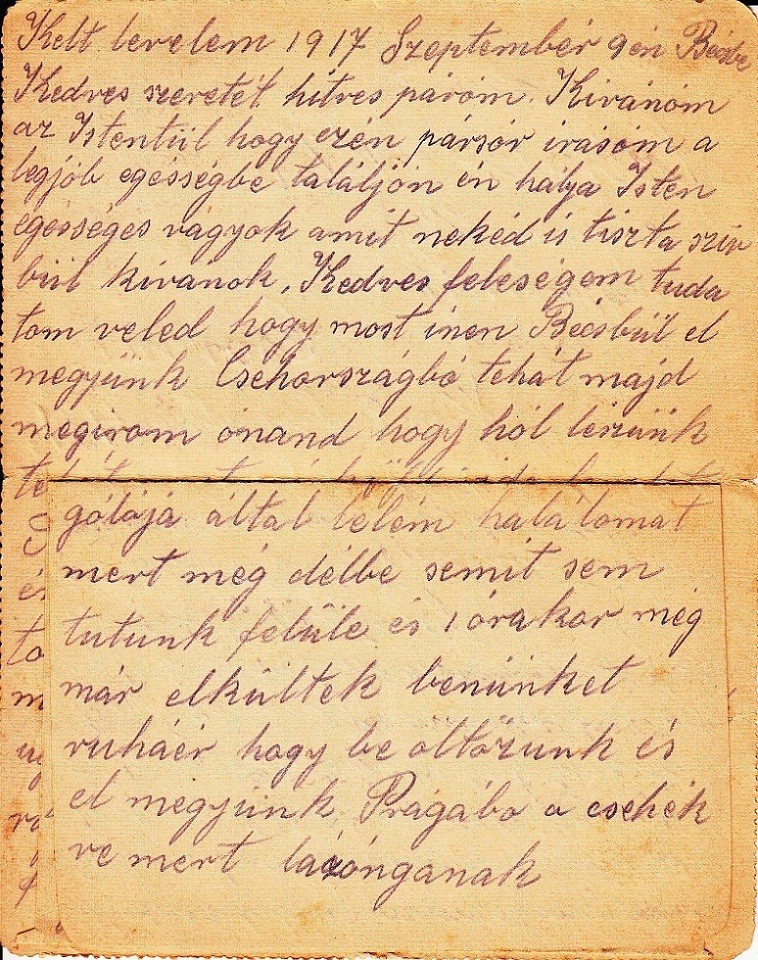 Kelt levelem 1917 Szeptember 9én Bécsbe
Kedves szeretét hitves páróm. Kivánóm
az Istentül hogy ezén pársór irásóm a
legjób egésségbe találjón én hálja Isten
egésséges vágyok amit nekéd is tiszta sziv
bül kivanok. Kedves feleségem tuda
tom veled hogy most inen Bécsbül el
megyünk Csehországbó tehát majd
megirom ónand hogy hól lészünk
gólójá által lelém halálomat
mert még délbe semit sem
tutunk felüle és 1 órakor még
már elkültek benünket
ruháér hogy be öltözunk és
el megyünk Prágába a csehék
re mert lázónganak